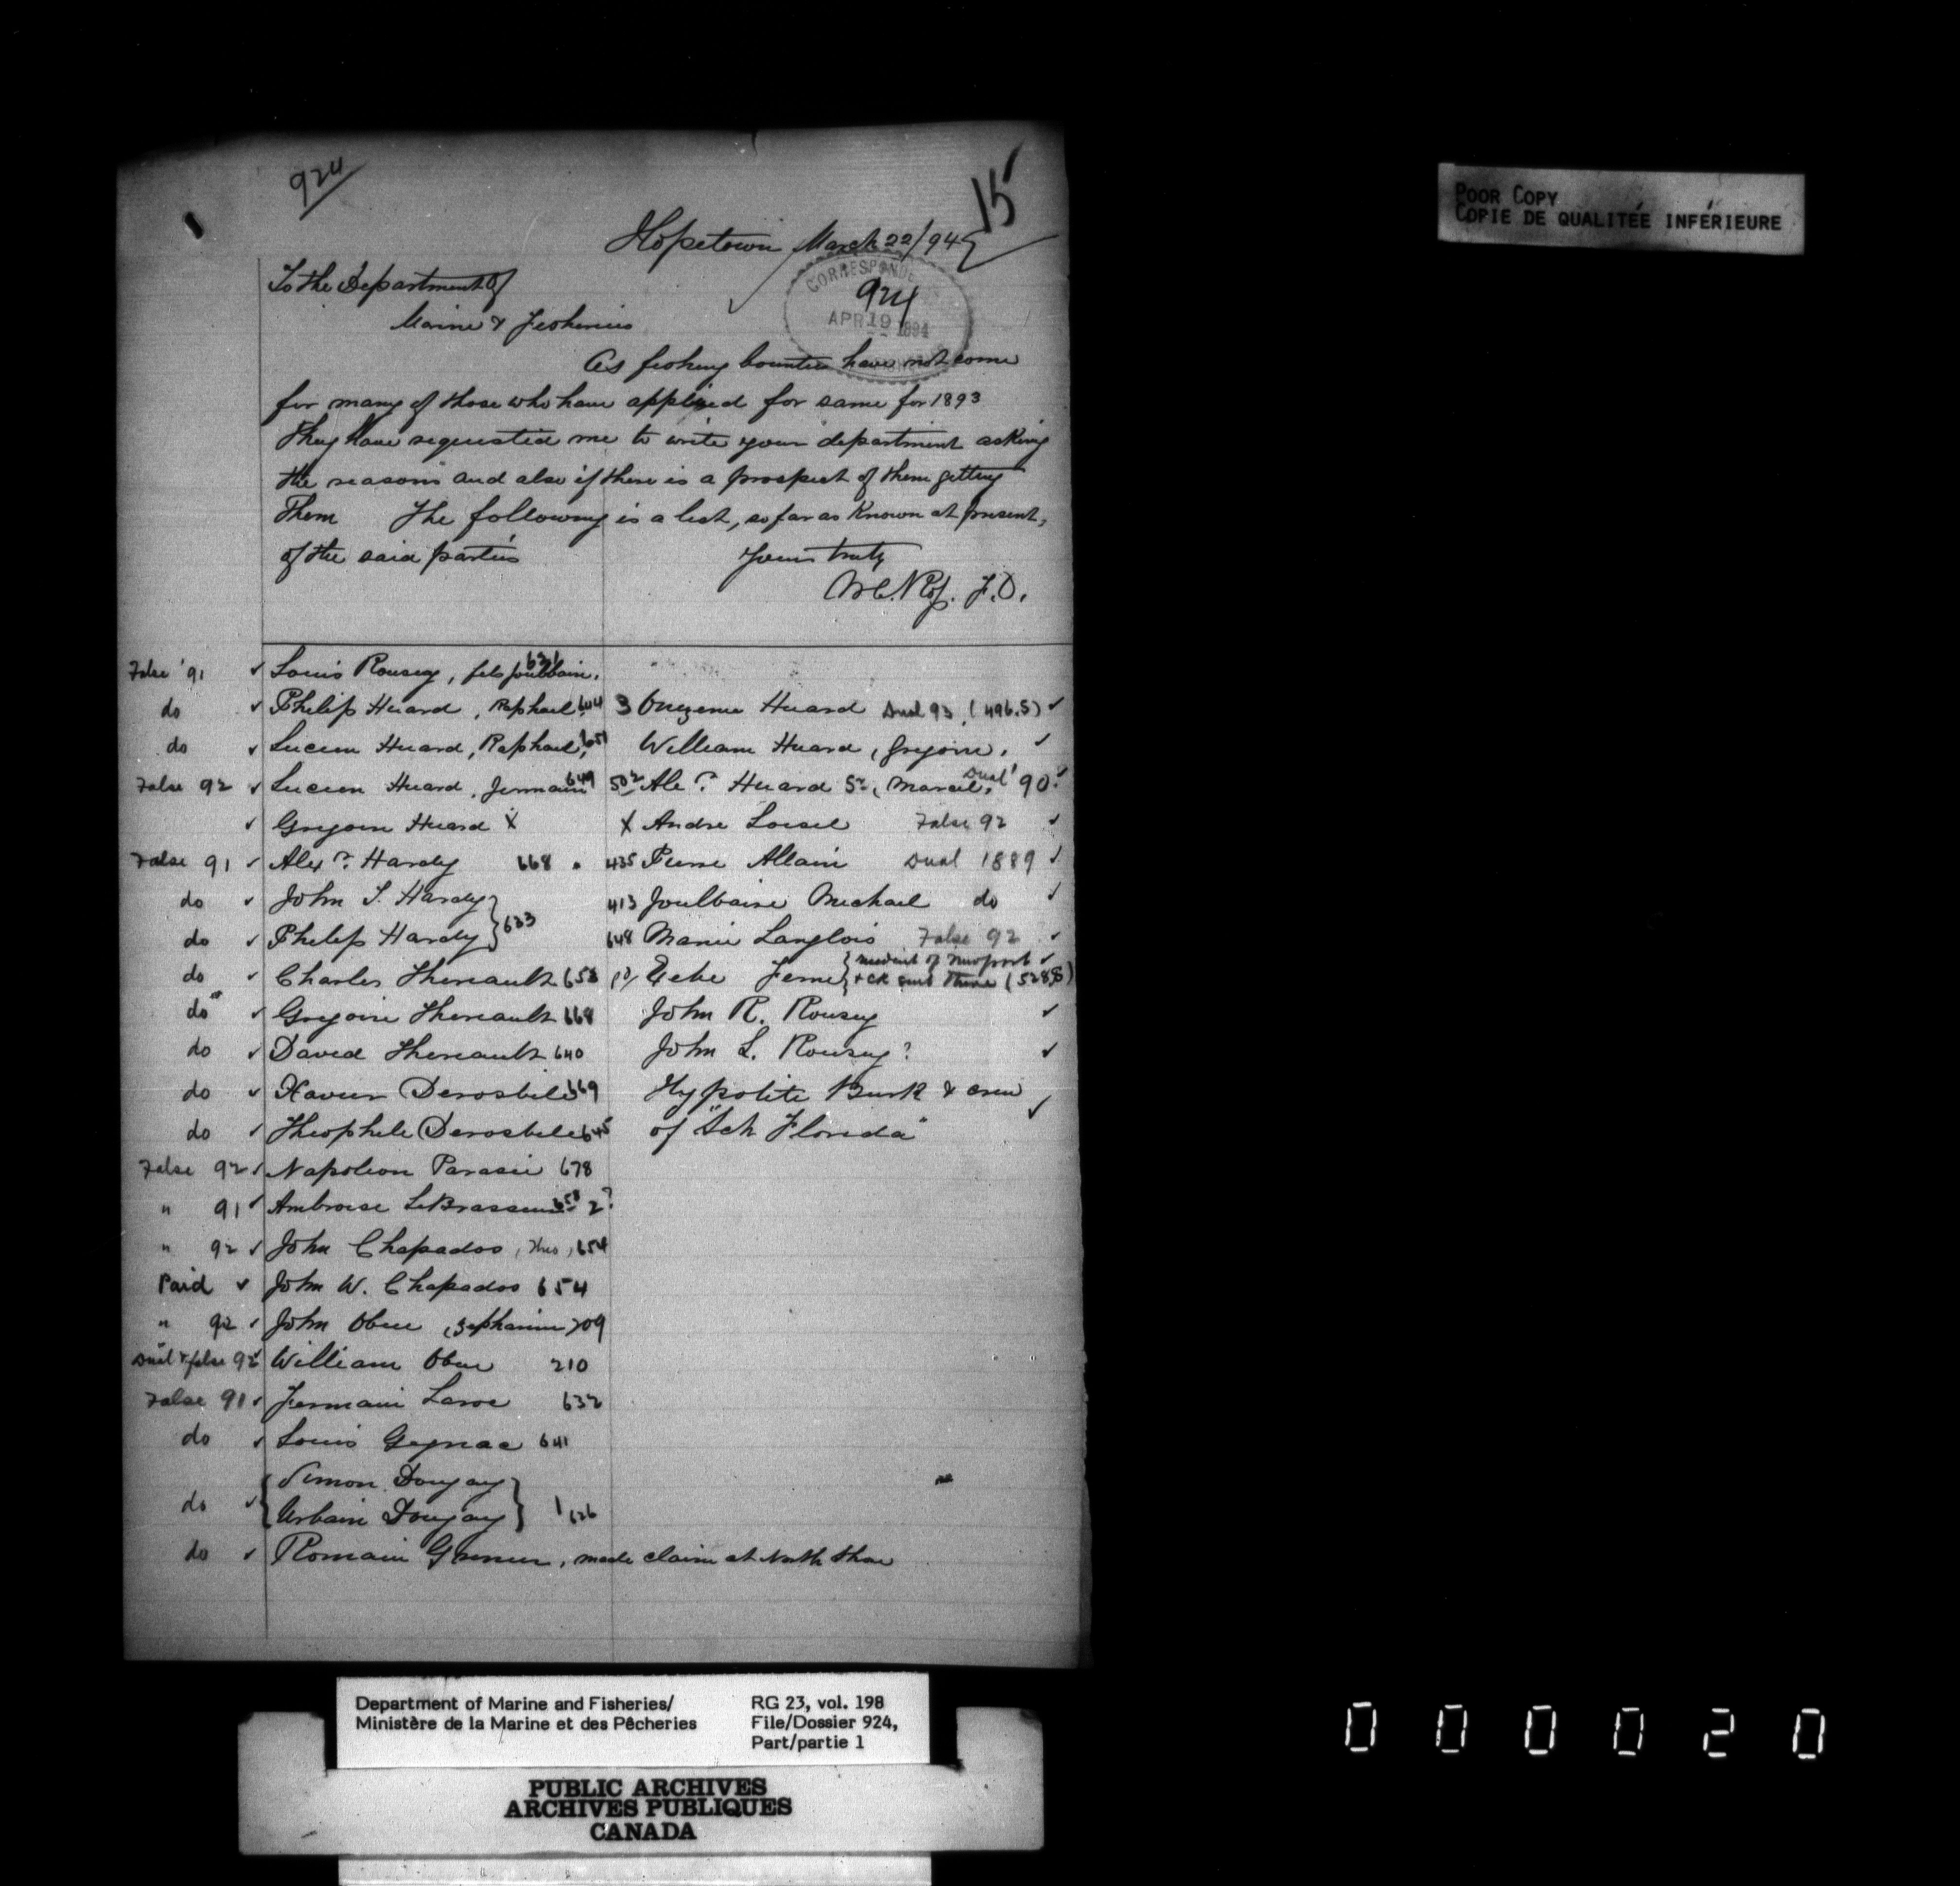 924
15
Hopetown March 22/94
To the Department of
Marine & Fisheries
CORRESPONDE
924
APR 19 1894
As fishing bounties have not come
for many of those who have applied for same for 1893
They have requested me to write your department asking
the reasons and also if there is a prospect of them getting
Them The following is a list, so far as Known at present,
of the said parties Yours truly
F.O.
False '91 ✓ Louis Rousey, fils Joulbain. 631
do ✓ Philip Huard, Raphael, 644
do ✓ Lucien Huard, Raphael, 651
False 92 ✓ Lucien Huard, Jermain 649
✓ Gregoire Huard X
False 91 ✓ Alexr. Hardy 668
do ✓ John S. Hardy }
do ✓ Philip Hardy } 633
do ✓ Charles Thereault 653
do ✓ Gregoire Thereault 668
do ✓ David Thereault 640
do ✓ Xavier Derosbile 669
do ✓ Theophile Derosbile 645
False 92 ✓ Napoleon Parasie 678
" 91 ✓ Ambroise LeBrasseur 658 2?
" 92 ✓ John Chapados, Thos, 654
Paid ✓ John W. Chapados 654
" 92 ✓ John Obee, Zepharin 209
Dual & false 92 ✓ William Obee 210
False 91 ✓ Jermain Laroc 632
do ✓ Louis Gagnac 641
do ✓ { Simon Dougay }
{ Urbain Dougay } 1 626
do ✓ Romain Grenier, made claim at North Shore
3 Onezeme Huard Dual 93, (496.5) ✓
William Huard, Gregoire, ✓
502 Alexr. Huard Sr, Marcel, Dual '90 ✓
X Andre Loisel False 92 ✓
435 Pierre Allain Dual 1889 ✓
413 Joulbaire Michael do ✓
648 Marie Langlois False 92 ✓
Zebe { resident of Newport ✓
& ck sent there (5288)
John R. Rousey ✓
John L. Rousey? ✓
Hypolite Burk & crew
of "Sch Florida" ✓
POOR COPY
COPIE DE QUALITÉE INFÉRIEURE
Department of Marine and Fisheries/
Ministère de la Marine et des Pêcheries
RG 23, vol. 198
File/Dossier 924,
Part/partie 1
PUBLIC ARCHIVES
ARCHIVES PUBLIQUES
CANADA
000020